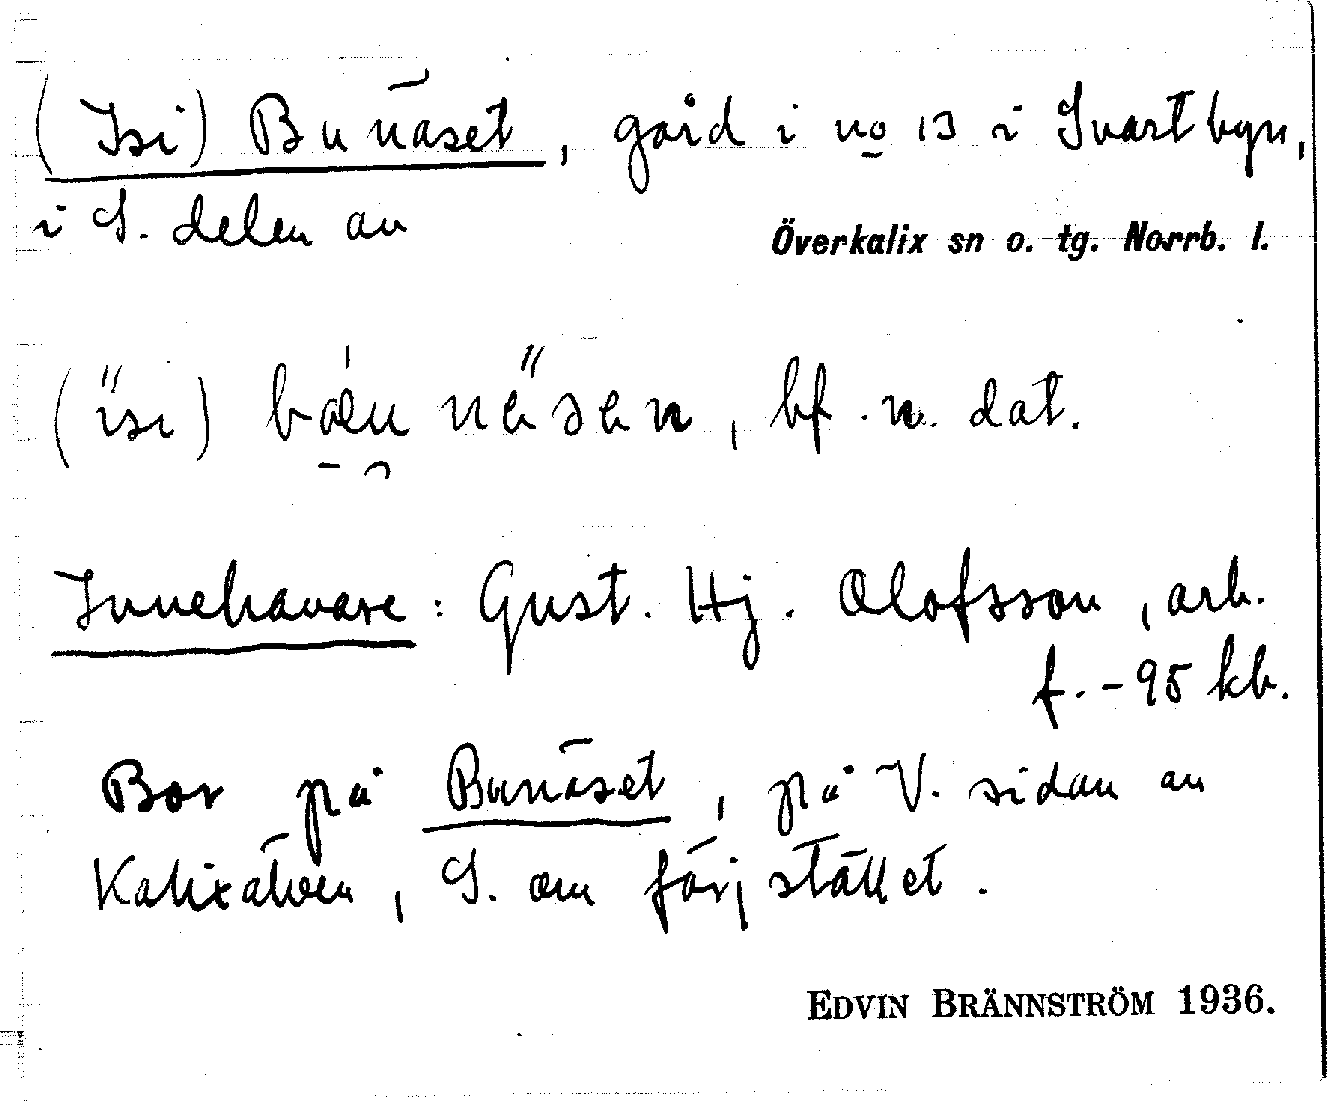 (Isi) Bunäset, gård i no 13 i Svartbyn,
i S. delen av
Överkalix sn o. tg. Norrb. l.
bf. n. dat.
Innehavare: Gust. Hj. Olofsson, arb.
f. -95 kb.
Bor på Bunäset, på V. sidan av
Kalixälven, S. om färjstället.
EDVIN BRÄNNSTRÖM 1936.